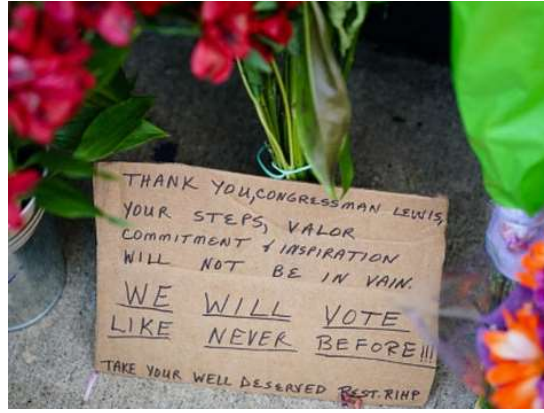 THANK YOU, CONGRESSMAN LEWIS,
YOUR STEPS, VALOR
COMMITMENT & INSPIRATION
WILL NOT BE IN VAIN.
WE WILL VOTE
LIKE NEVER BEFORE!!!
TAKE YOUR WELL DESERVED REST. RIHP